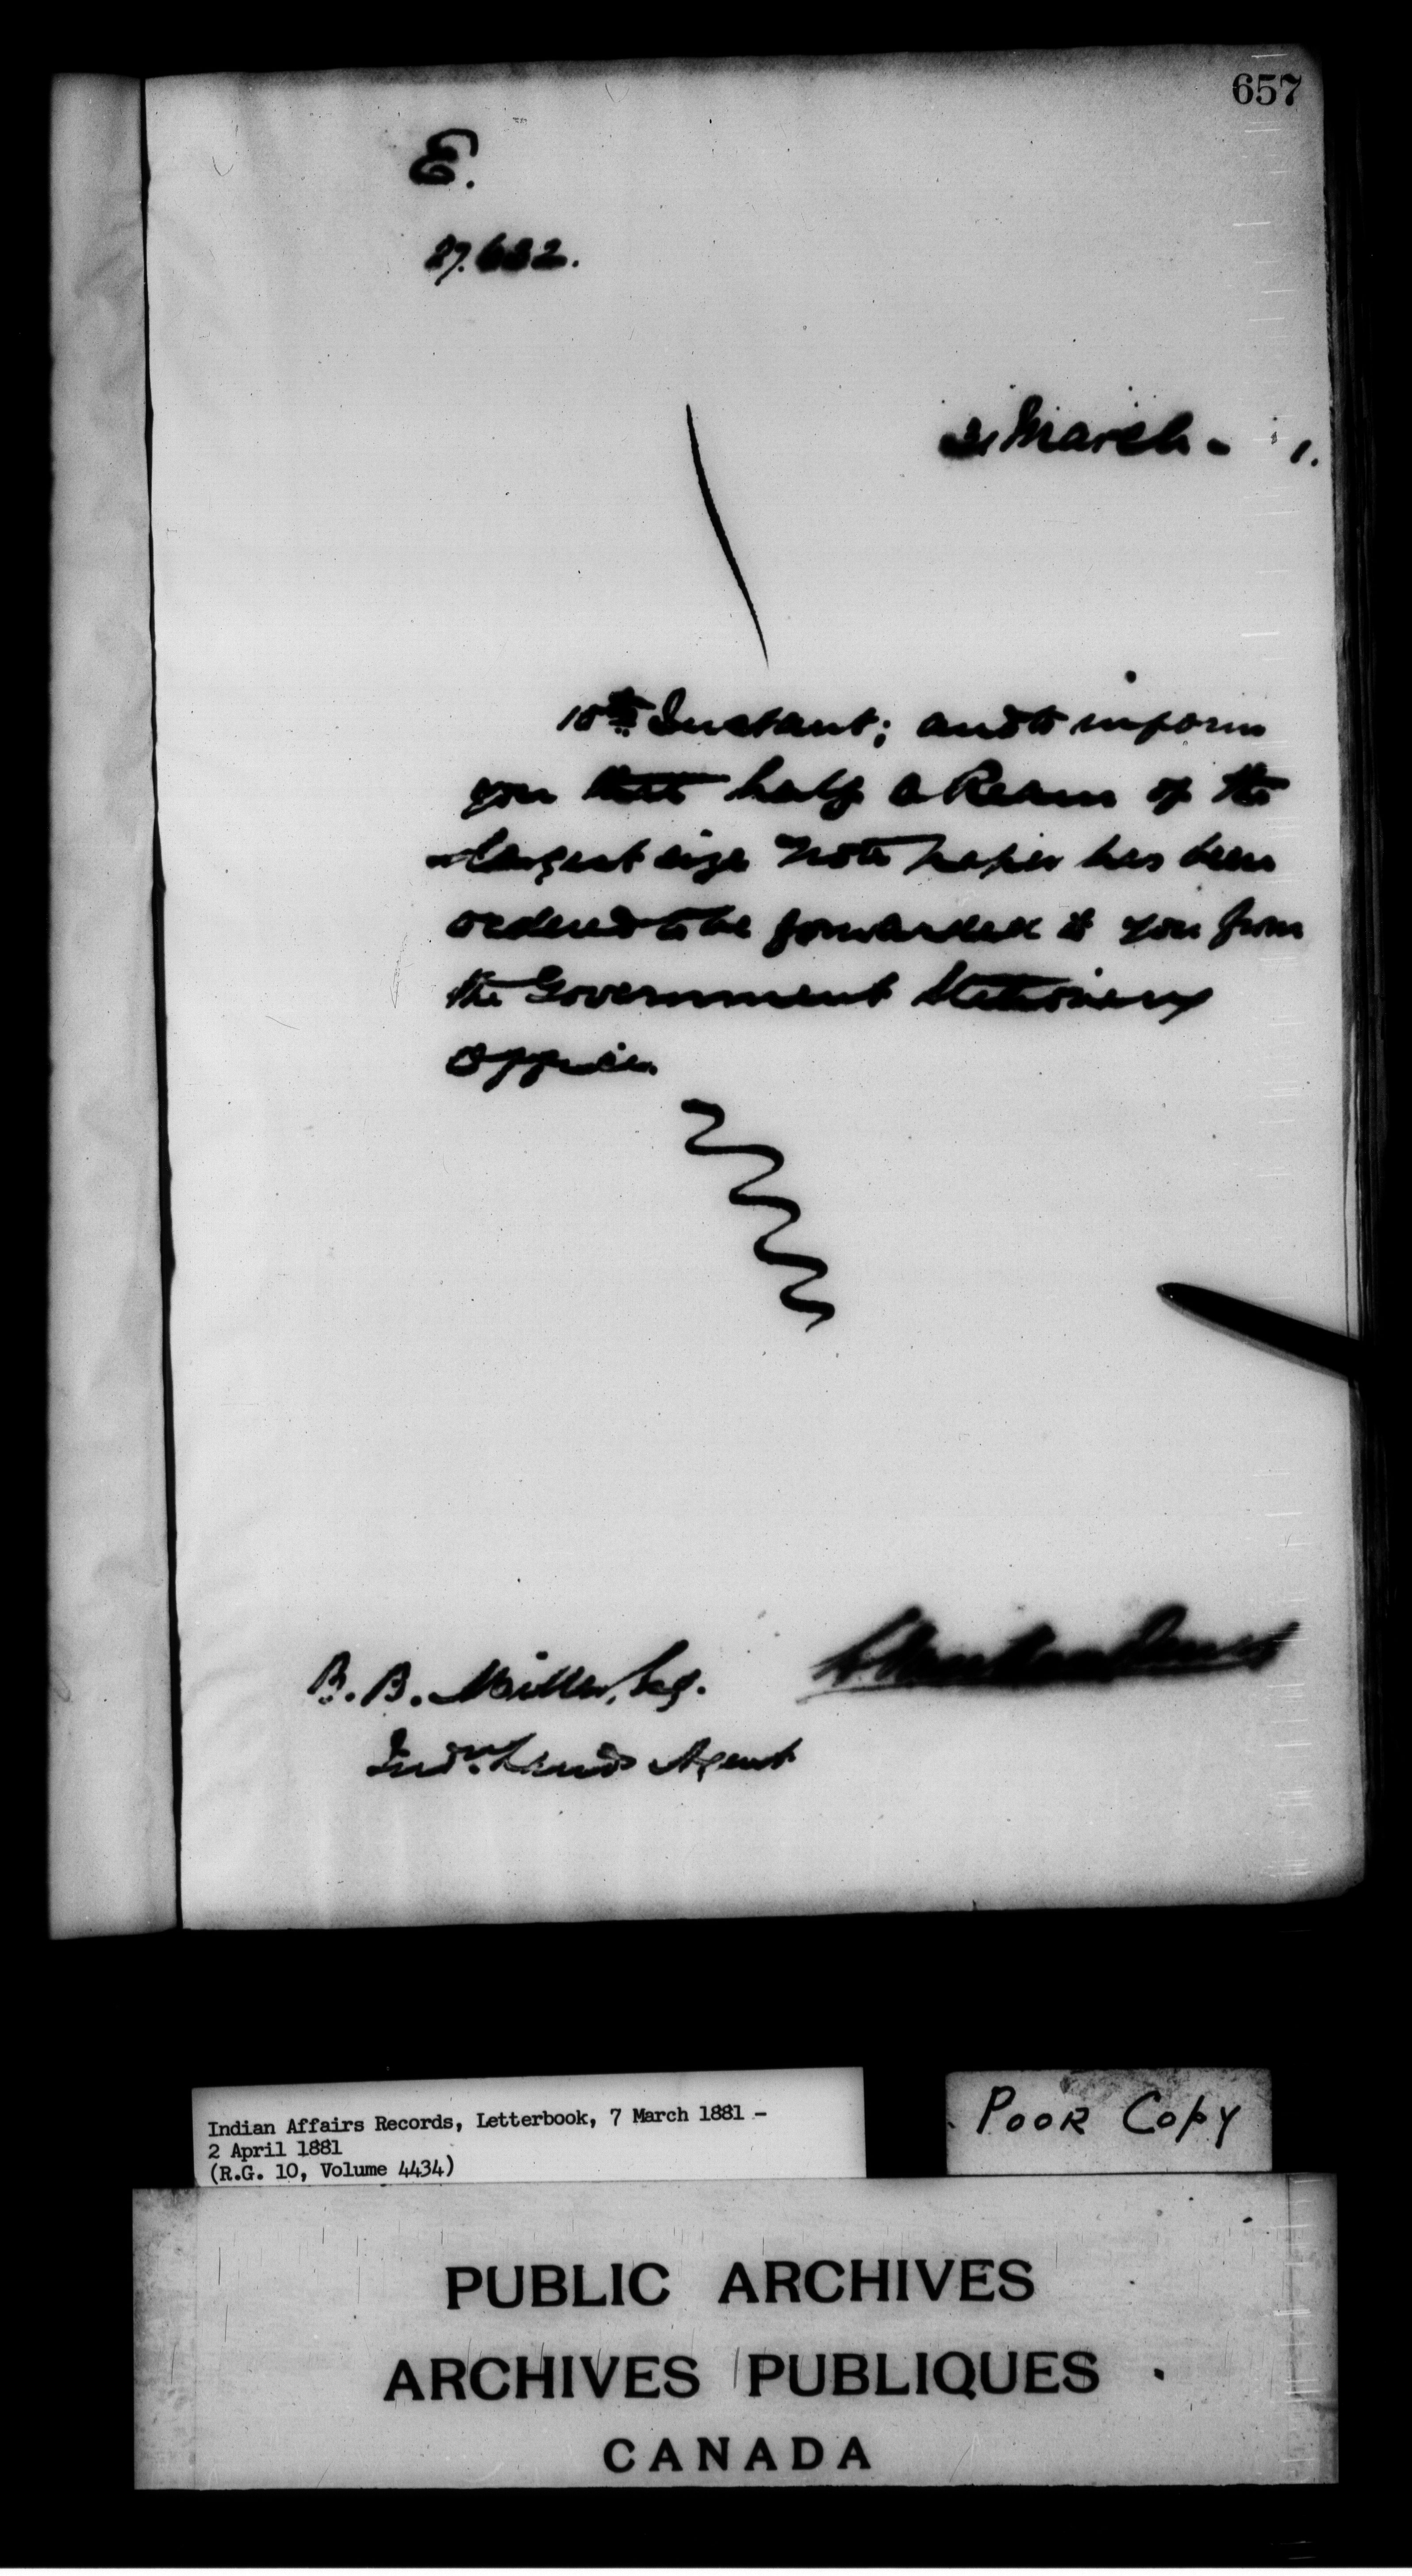 657
E.
27.632.
31 March - 1.
18th Instant; and to inform
you that half a Ream of the
largest size Note paper has been
ordered to be forwarded to you from
the Government Stationery
Office.
B. B. Miller, Esq.
Indn. Lands Agent
Indian Affairs Records, Letterbook, 7 March 1881 -
2 April 1881
(R.G. 10, Volume 4434)
POOR COPY
PUBLIC ARCHIVES
ARCHIVES PUBLIQUES
CANADA